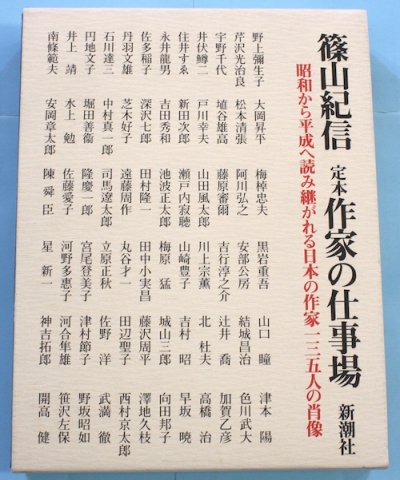 篠山紀信 定本 作家の仕事場 新潮社
昭和から平成へ読み継がれる日本の作家一三五人の肖像
野上彌生子 大岡昇平 梅棹忠夫 黒岩重吾 山口瞳 津本陽
芹沢光治良 松本清張 阿川弘之 安部公房 結城昌治 色川武大
宇野千代 埴谷雄高 藤原審爾 吉行淳之介 辻井喬 加賀乙彦
井伏鱒二 戸川幸夫 山田風太郎 川上宗薫 北杜夫 高橋治
住井すゑ 新田次郎 瀬戸内寂聴 山崎豊子 吉村昭 早坂暁
永井龍男 吉田秀和 池波正太郎 梅原猛 城山三郎 向田邦子
佐多稲子 深沢七郎 田村隆一 田中小実昌 藤沢周平 澤地久枝
丹羽文雄 芝木好子 遠藤周作 丸谷才一 田辺聖子 西村京太郎
石川達三 中村真一郎 司馬遼太郎 立原正秋 佐野洋 武満徹
円地文子 堀田善衞 隆慶一郎 宮尾登美子 津村節子 野坂昭如
井上靖 水上勉 佐藤愛子 河野多惠子 河合隼雄 笹沢左保
南條範夫 安岡章太郎 陳舜臣 星新一 神吉拓郎 開高健